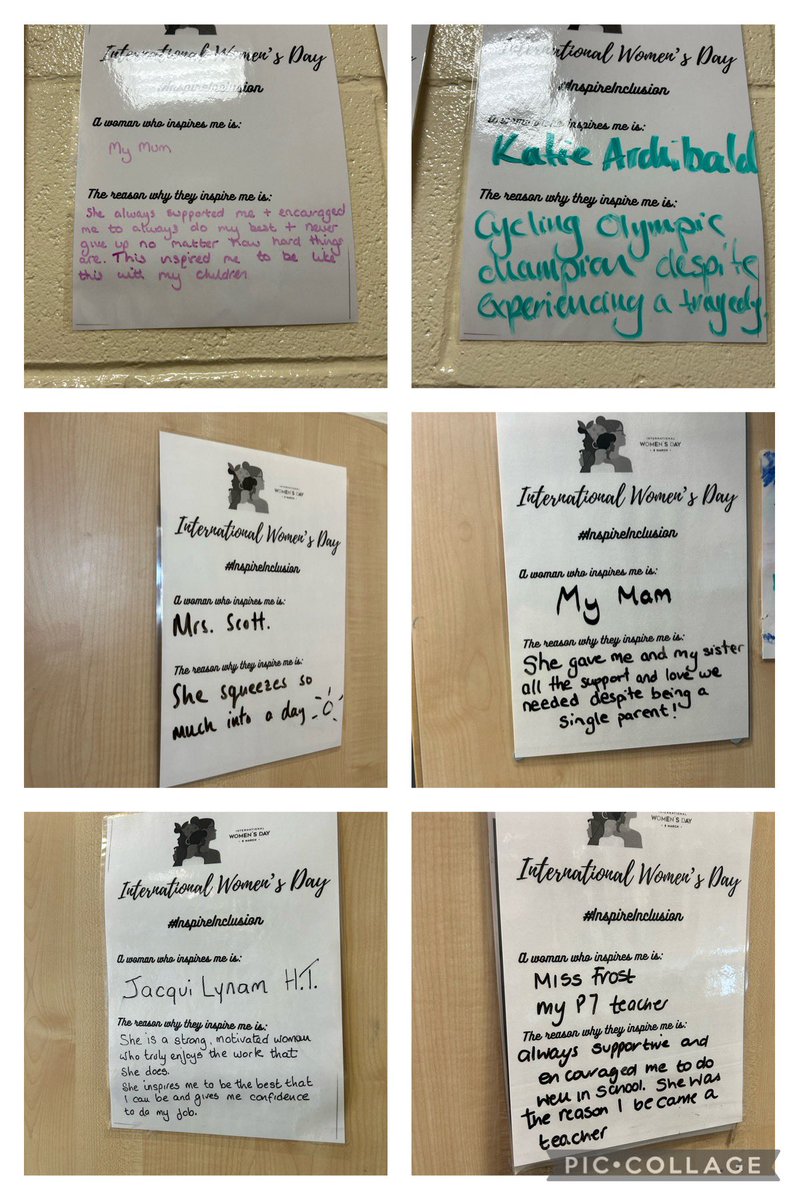 International Women's Day
#InspireInclusion
A woman who inspires me is:
My Mum
The reason why they inspire me is:
She always supported me + encouraged
me to always do my best + never
give up no matter how hard things
are. This inspired me to be like
this with my children
International Women's Day
#InspireInclusion
A woman who inspires me is:
Katie Archibald
The reason why they inspire me is:
Cycling Olympic
champion despite
experiencing a tragedy.
INTERNATIONAL
WOMEN'S DAY
8 MARCH
International Women's Day
#InspireInclusion
A woman who inspires me is:
Mrs. Scott.
The reason why they inspire me is:
She squeezes so
much into a day
INTERNATIONAL
WOMEN'S DAY
- 8 MARCH -
International Women's Day
#InspireInclusion
A woman who inspires me is:
My Mam
The reason why they inspire me is:
She gave me and my sister
all the support and love we
needed despite being a
single parent!
INTERNATIONAL
WOMEN'S DAY
- 8 MARCH -
International Women's Day
#InspireInclusion
A woman who inspires me is:
Jacqui Lynam H.T.
The reason why they inspire me is:
She is a strong, motivated woman
who truly enjoys the work that
she does.
She inspires me to be the best that
I can be and gives me confidence
to do my job.
WOMEN'S DAY
- 8 MARCH -
International Women's Day
#InspireInclusion
A woman who inspires me is:
Miss Frost
my P7 teacher
The reason why they inspire me is:
always supportive and
encouraged me to do
well in school. She was
the reason I became a
teacher
PIC•COLLAGE